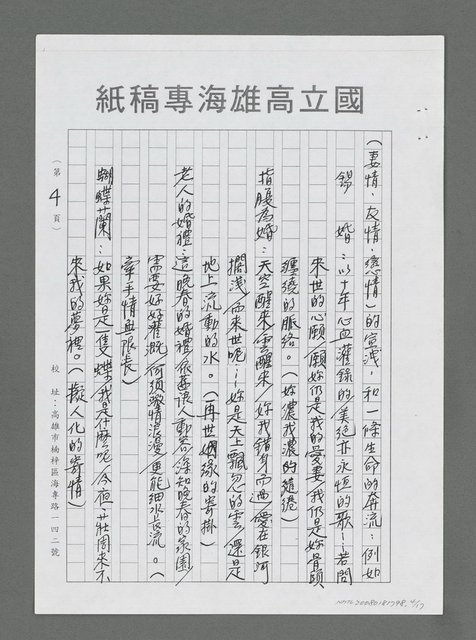 國立高雄海專專稿紙
(妻情、友情、戀情)的宣洩,和一條生命的奔流:例如
錫　婚:以十年心血灌錄的美絕非永恒的歌!若問
來世的心願/願妳仍是我的愛妻/我仍是妳骨頭
纏繞的脈絡。(妳儂我儂的繾綣)
指腹為婚:天空醒來/雲醒來/妳我錯身而過/愛在銀河
擱淺/而來世呢…妳是天上飄忽的雲/還是
地上流動的水。(再世姻緣的寄掛)
老人的婚禮:這晚春的婚禮/依舊讓人動容/深知晚春的家園/
需要好好灌溉/何須激情浪漫/更能細水長流。(
牽手情無限長)
蝴蝶蘭:如果妳是一隻蝶/我是什麼呢/今夜/莊周來不
來我的夢裡。(擬人化的寄情)
(第 4 頁)
校址:高雄市楠梓區海專路一四二號
NMTL20080181798 4/17